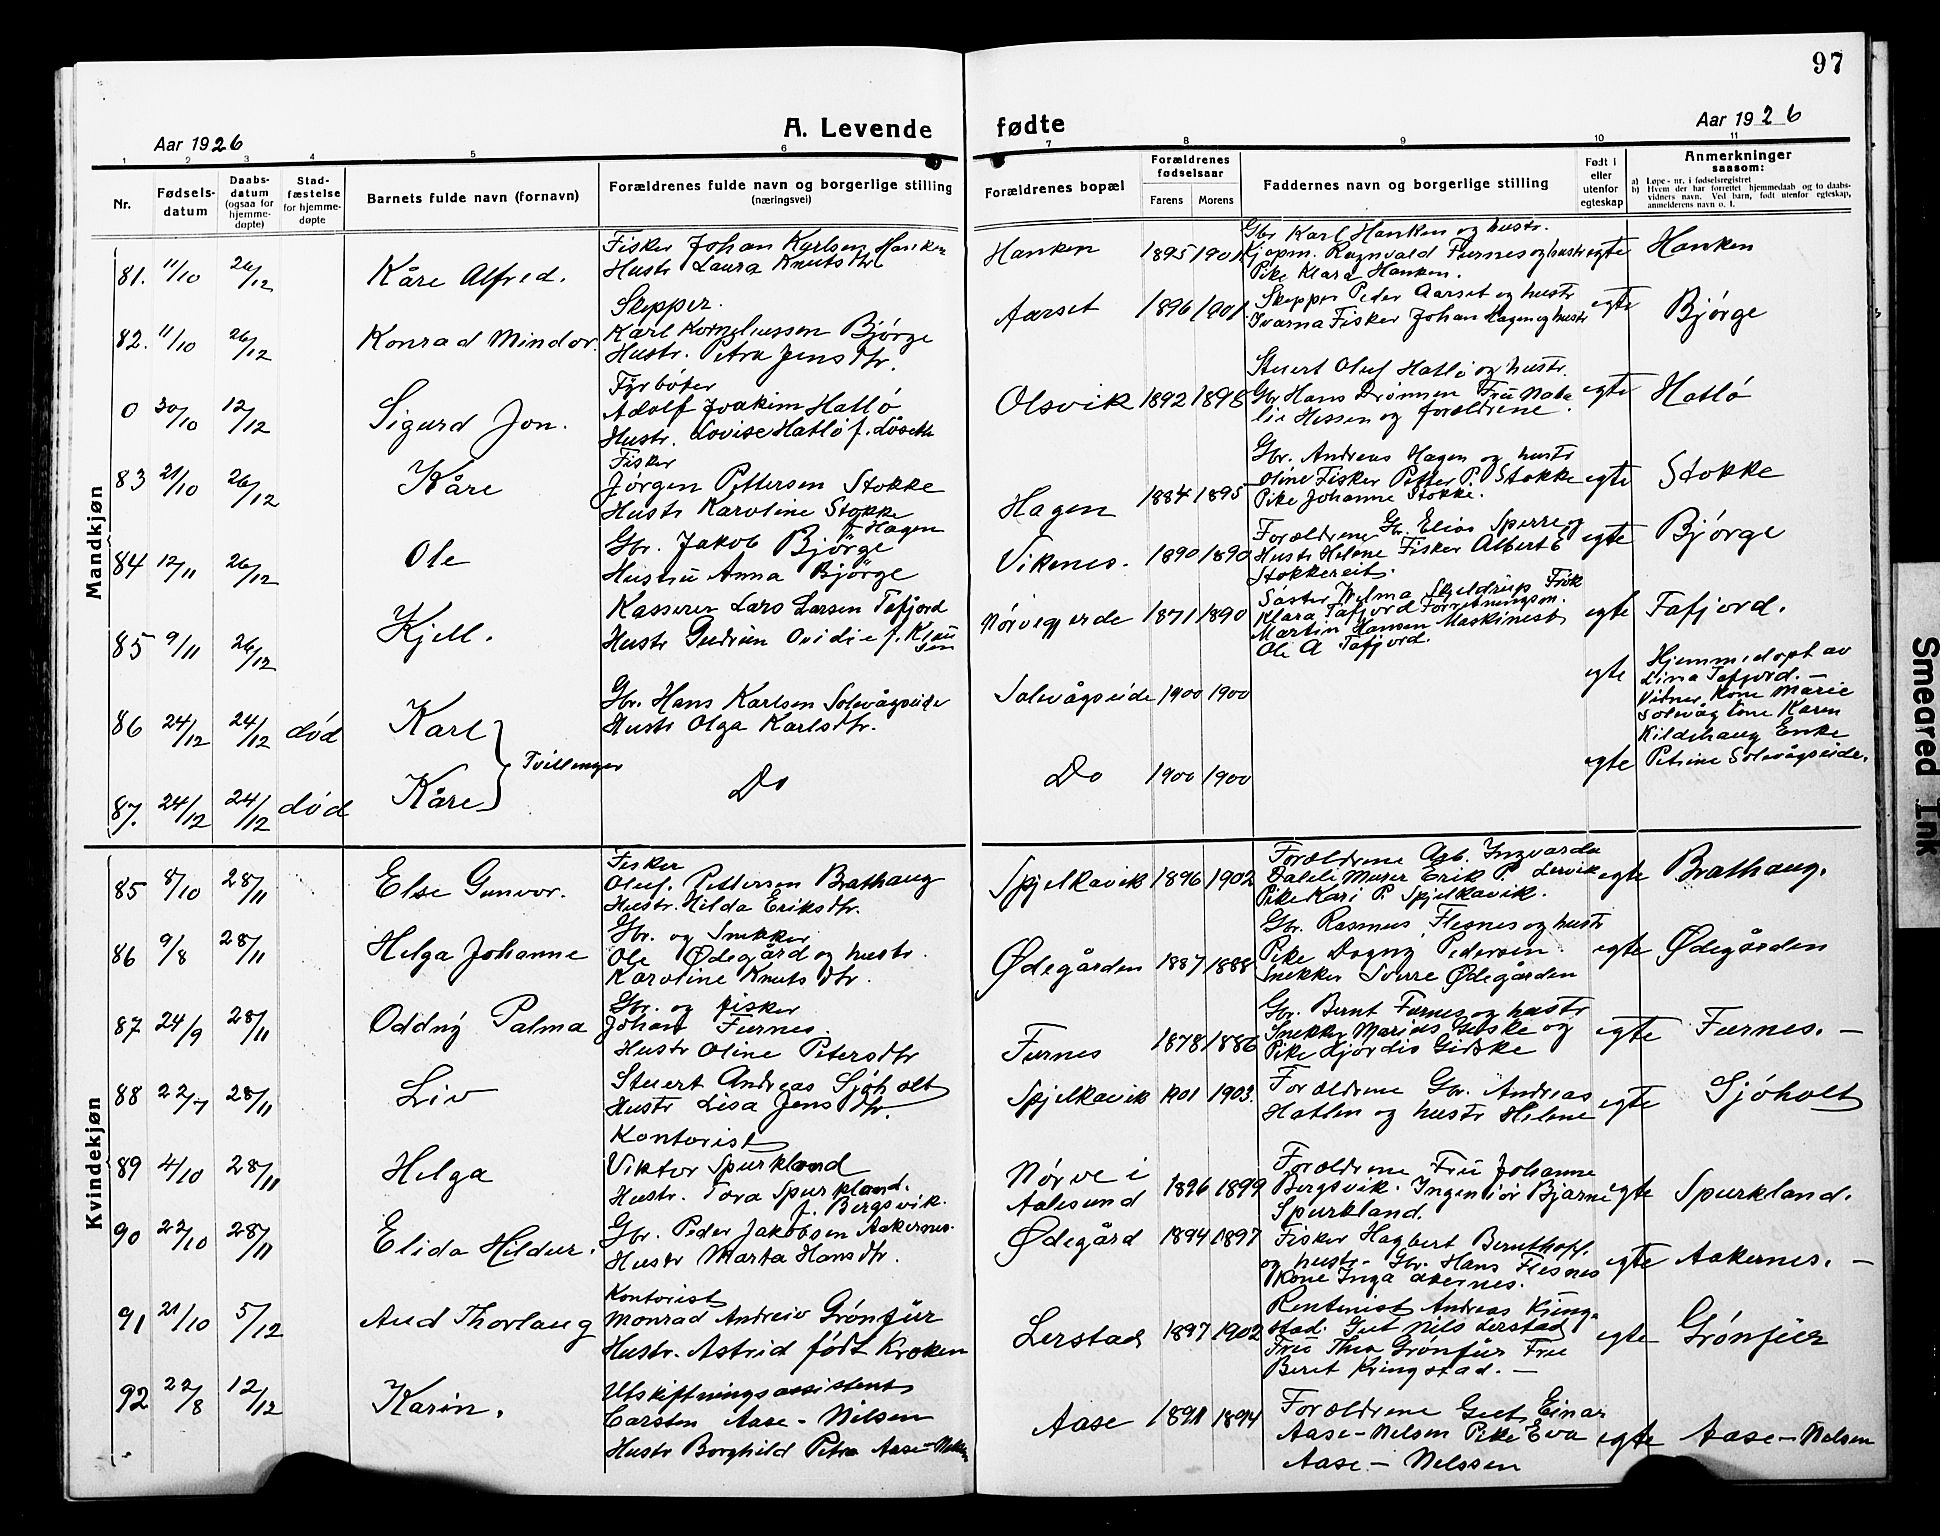 97
Aar 1926
A. Levende fødte
Aar 1926
1 2 3 4 5 6 7 8 9 10 11
Nr.
Fødsels-
datum
Daabs-
datum
(ogsaa for
hjemme-
døpte)
Stad-
fæstelse
for hjemme-
døpte
Barnets fulde navn (fornavn)
Forældrenes fulde navn og borgerlige stilling
(næringsvei)
Forældrenes bopæl
Forældrenes
fødselsaar
Farens Morens
Faddernes navn og borgerlige stilling
Født i
eller
utenfor
egteskap
Anmerkninger
saasom:
a) Løpe-nr. i fødselsregistret
b) Hvem der har forrettet hjemmedaab og to daabs-
vidners navn. Ved barn, født utenfor egteskap,
anmelderens navn o. l.
Mandkjøn
81. 11/10 26/12 Kåre Alfred.
Fisker Johan Karlsen Hanken
Hustr Laura Knutsdtr
Hanken 1895 1901
Gbr Karl Hanken og hustr.
Kjøpm. Ragnvald Furnes og hustr
Pike Klara Hanken.
egte Hanken
82. 11/10 26/12 Konrad Mindor.
Skipper.
Karl Korneliussen Bjørge
Hustr. Petra Jensdtr.
Aarset 1896 1901
Skipper Peder Aarset og hustr
Ivarna Fisker Johan Hagen og hustr
egte Bjørge
0 30/10 12/12 Sigurd Jon.
Fyrbøter
Adolf Joakim Hatlø
Hustr. Lovise Hatlø f. Løseth
Olsvik 1892 1898
Stuert Oluf Hatlø og hustr.
Gbr Hans Drønnen Fru Nata
lie Hessen og forældrene.
egte Hatlø
83 21/10 26/12 Kåre
Fisker
Jørgen Pettersen Stokke
Hustr Karoline Stokke
f. Hagen
Hagen 1884 1895
Gbr. Andreas Hagen og hustr
Oline Fisker Petter P. Stokke
Pike Johanne Stokke.
egte Stokke
84 12/11 26/12 Ole
Gbr. Jakob Bjørge
Hustru Anna Bjørge
Vikenes. 1890 1890
Forældrene Gbr Elias Sperre og
Hustr Helene Fisker Albert E
Stokkereit.
egte Bjørge
85 9/11 26/12 Kjell.
Kasserer Lars Larsen Tafjord
Hustr Gudrun Ovidie f. Klau
sen
Nørvegjerde 1871 1890
Søster Helma Skjeldrup Frøk
Klara Tafjord Forretningsm.
Martin Hansen Maskinest
Ole A Tafjord.
egte Tafjord.
86 24/12 24/12 død Karl
Gbr. Hans Karlsen Solevågseide
Hustr Olga Karlsdtr.
Solevågseide 1900 1900
egte
Hjemmedøpt av
Lina Tafjord. —
Vidner Kone Marie
Solevåg Kone Karen
Kildehaug Enke
Petrine Solevågseide.
Tvillinger
87. 24/12 24/12 død Kåre
Do
Do 1900 1900
egte
Kvindekjøn
85 8/10 28/11 Else Gunvor.
Fisker
Oluf. Pettersen Brathaug
Hustr. Hilda Eriksdtr.
Spjelkavik 1896 1902
Forældrene Arb. Ingvarda
Dalele Murer Erik P. Lervik
Pike Kari P. Spjelkavik.
egte Brathaug.
86 9/8 28/11 Helga Johanne
Gbr. og Snekker
Ole Ødegård og hustr.
Karoline Knutsdtr.
Ødegården 1887 1888
Gbr. Rasmus Flesnes og hustr
Pike Dagny Pedersen
Snekker Sverre Ødegården
egte Ødegården
87 24/9 28/11 Oddny Palma
Gbr. og fisker
Johan Furnes.
Hustr Oline Petersdtr
Furnes 1878 1886
Gbr. Bernt Furnes og hustr
Snekker Marius Giske og
Pike Hjørdis Giske
egte Furnes. —
88 22/7 28/11 Liv
Stuert Andreas Sjøholt
Hustr Lisa Jensdtr.
Spjelkavik 1901 1903.
Forældrene Gbr. Andreas
Hatlen og hustr Helene
egte Sjøholt
89 4/10 28/11 Helga
Kontorist
Viktor Spurkland
Hustr. Tora Spurkland.
f. Bergsvik.
Nørve i
Aalesund 1896 1899
Forældrene Fru Johanne
Bergsvik. Ingeniør Bjarne
Spurkland.
egte Spurkland.
90 22/10 28/11 Elida Hildur.
Gbr. Peder Jakobsen Aakernes.
Hustr Marta Hansdtr.
Ødegård 1894 1897
Fisker Hagbert Bernthopf.
og hustr. Gbr. Hans Flesnes
Kone Inga Akernes.
egte Aakernes. —
91 21/10 5/12 Aud Thorlaug
Kontorist
Monrad Andreiv Grønfur
Hustr. Astrid født Kroken
Lerstad 1897 1902
Rentenist Andreas Kring-
stad. Gut Nils Lerstad
Fru Thea Grønfur Fru
Beret Kringstad. —
egte Grønfur
92 22/8 12/12 Karin.
Utskiftningsassistent
Carsten Aase-Nilsen
Hustr Borghild Petra Aase-Nilsen
Aase 1891 1894
Forældrene Gut Einar
Aase-Nilsen Pike Eva
Aase-Nilssen
egte Aase-Nilsen
Smeared Ink